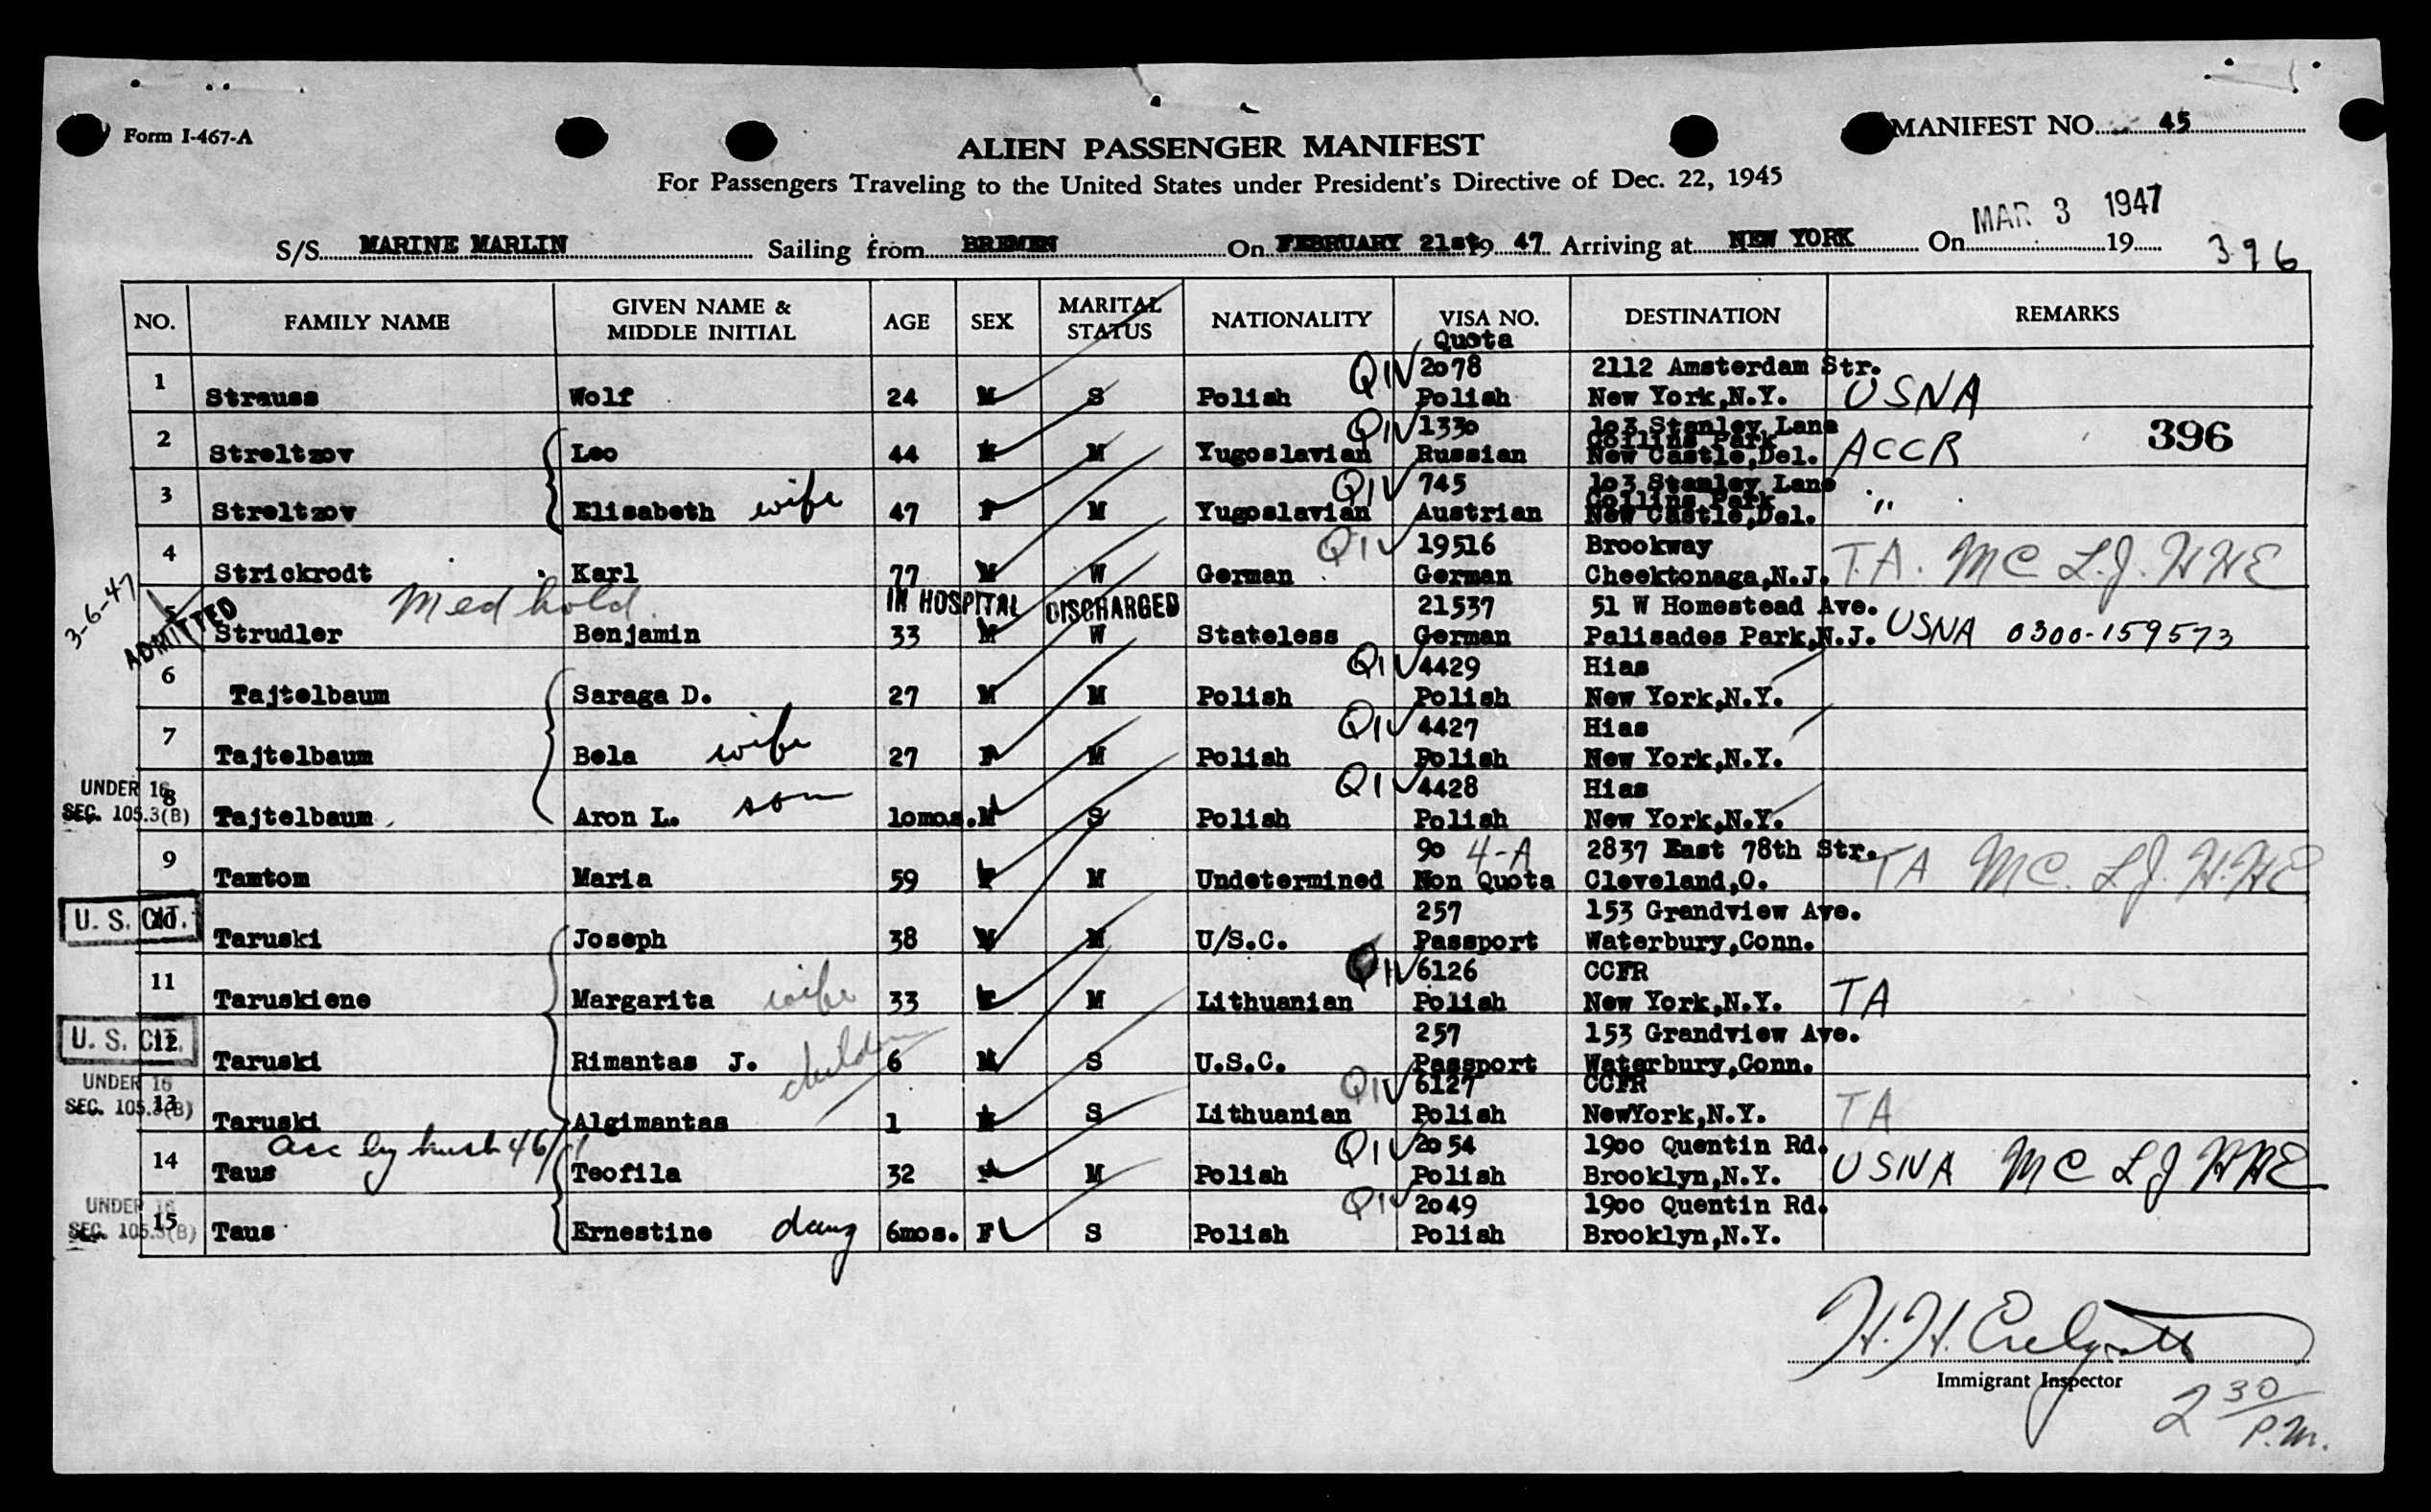 Form I-467-A
MANIFEST NO. 45
ALIEN PASSENGER MANIFEST
For Passengers Traveling to the United States under President's Directive of Dec. 22, 1945
MAR 3 1947
S/S MARINE MARLIN Sailing from BREMEN On FEBRUARY 21st 19 47 Arriving at NEW YORK On 19
396
NO. FAMILY NAME GIVEN NAME & MIDDLE INITIAL AGE SEX MARITAL STATUS NATIONALITY VISA NO. Quota DESTINATION REMARKS
1 QIV 2078 2112 Amsterdam Str.
Strauss Wolf 24 M S Polish Polish New York,N.Y. USNA
2 QIV 1330 103 Stanley Lane
Collins Park 396
Streltzov Leo 44 M M Yugoslavian Russian New Castle,Del. ACCR
3 QIV 745 103 Stanley Lane
Collins Park
Streltzov Elisabeth wife 47 F M Yugoslavian Austrian New Castle,Del. "
4 QIV 19516 Brookway
Strickrodt Karl 77 M W German German Cheektonaga,N.J. T.A. MC L.J. HHE
3-6-47 ADMITTED
5 Med hold IN HOSPITAL DISCHARGED 21537 51 W Homestead Ave.
Strudler Benjamin 33 M W Stateless German Palisades Park,N.J. USNA 0300-159573
6 QIV 4429 Hias
Tajtelbaum Saraga D. 27 M M Polish Polish New York,N.Y.
7 QIV 4427 Hias
Tajtelbaum Bela wife 27 F M Polish Polish New York,N.Y.
UNDER 16 8 QIV 4428 Hias
SEC. 105.3(B) Tajtelbaum Aron L. son 10mos. M S Polish Polish New York,N.Y.
9 90 4-A 2837 East 78th Str.
Tamtom Maria 59 F M Undetermined Non Quota Cleveland,O. TA MC. L.J. H.HE
U. S. CIT. 10 257 153 Grandview Ave.
Taruski Joseph 38 M M U/S.C. Passport Waterbury,Conn.
11 QIV 6126 CCFR
Taruskiene Margarita wife 33 F M Lithuanian Polish New York,N.Y. TA
U. S. CIT. 12 257 153 Grandview Ave.
Taruski Rimantas J. children 6 M S U.S.C. Passport Waterbury,Conn.
UNDER 16 13 QIV 6127 CCFR
SEC. 105.3(B) Taruski Algimantas 1 M S Lithuanian Polish NewYork,N.Y. TA
14 acc by husb 46/1 QIV 2054 1900 Quentin Rd.
Taus Teofila 32 F M Polish Polish Brooklyn,N.Y. USNA MC LJ HHE
UNDER 16 15 QIV 2049 1900 Quentin Rd.
SEC. 105.3(B) Taus Ernestine daug 6mos. F S Polish Polish Brooklyn,N.Y.
H.H.
Immigrant Inspector
2 30/P.M.